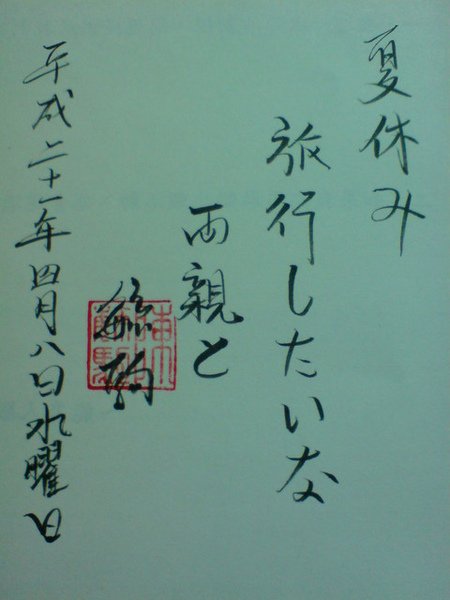 夏休み
旅行したいな
両親と
平成二十一年四月八日水曜日